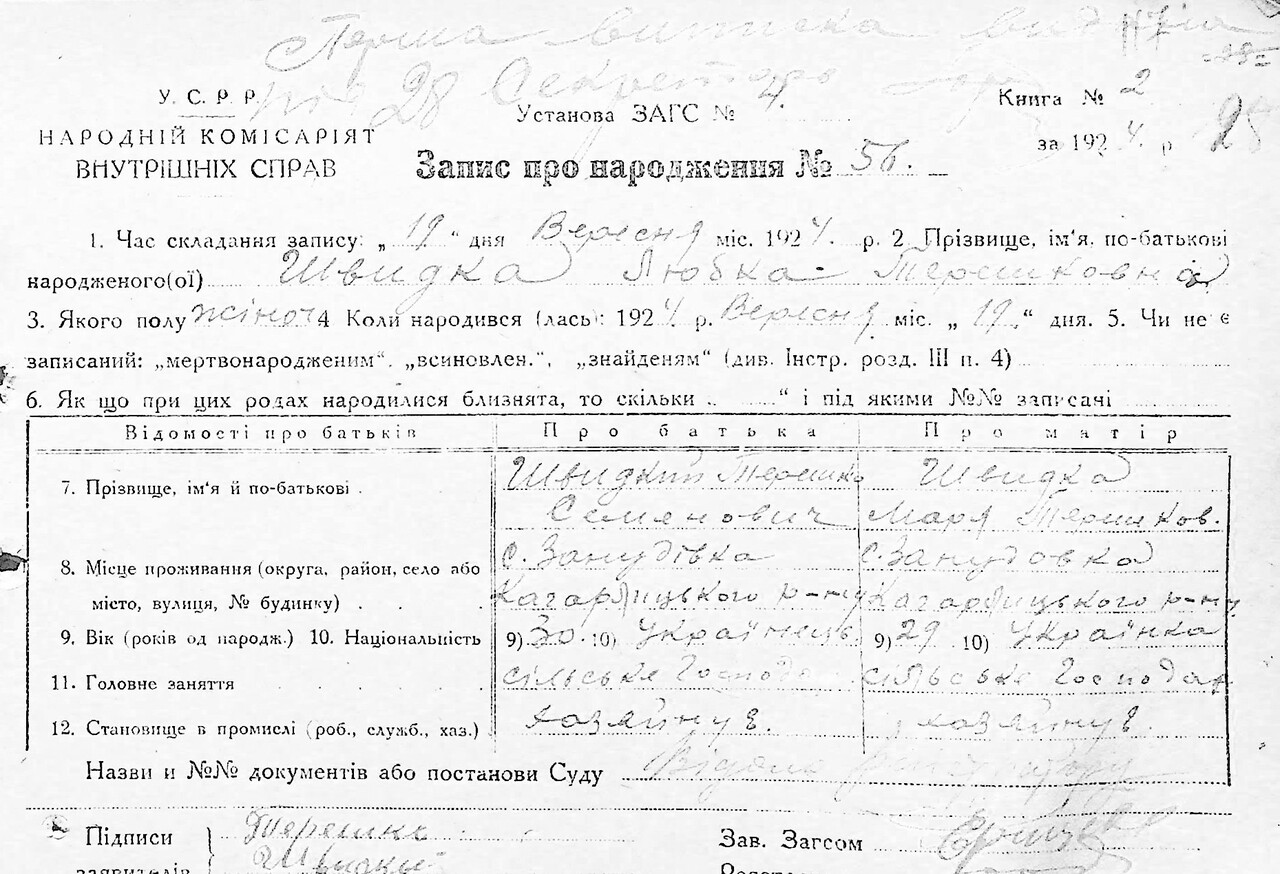 Перша виписка видана
28 Секретарь
-28-
У. С. Р. Р.
НАРОДНІЙ КОМІСАРІЯТ
ВНУТРІШНІХ СПРАВ
Установа ЗАГС № 4.
Книга № 2
за 1924 р
28
Запис про народження № 56.
1. Час складання запису: „ 19 “ дня Вересня міс. 1924. р. 2 Прізвище, ім'я, по-батькові
народженого(ої) Швидка Любка Терешковна
3. Якого полу жіноч 4 Коли народився (лась): 1924 р. Вересня міс. „ 19 “ дня. 5. Чи не є
записаний: „мертвонародженим“, „всиновлен.“, „знайденям“ (див. Інстр. розд. III п. 4)
6. Як що при цих родах народилися близнята, то скільки „ “ і під якими №№ записані
Відомості про батьків Про батька Про матір
7. Прізвище, ім'я й по-батькові . Швидкий Терешко Швидка
Семенович Маря Терешков.
8. Місце проживання (округа, район, село або с. Занудівка с. Занудовка
місто, вулиця, № будинку) . . . Кагарлицького р-ну Кагарлицького р-ну
9. Вік (років од народж.) 10. Національність 9) 30. 10) Українець. 9) 29 10) Українка
11. Головне заняття . . . . . сільське Господа. сільське Господар.
12. Становище в промислі (роб., служб., хаз.) хозяйнує. хозяйнує.
Назви и №№ документів або постанови Суду Відома
Підписи Терешко
заявителів Швидкы
Зав. Загсом